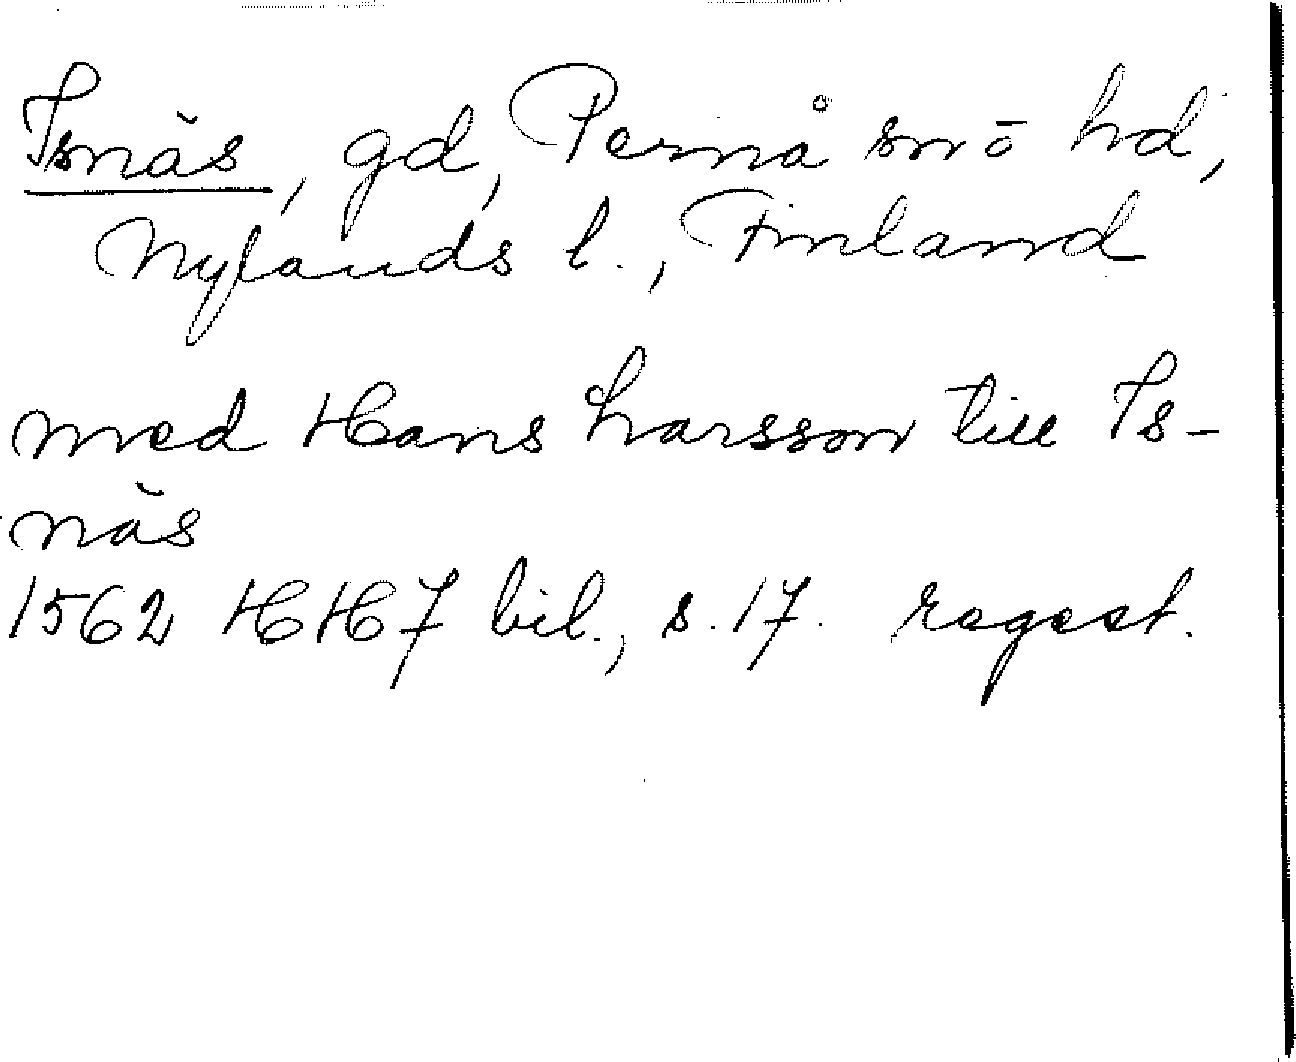 Isnäs, gd, Pernå sn o hd,
Nylands l., Finland
med Hans Larsson till Is-
näs
1562 HH7 bil., s. 17. regest.